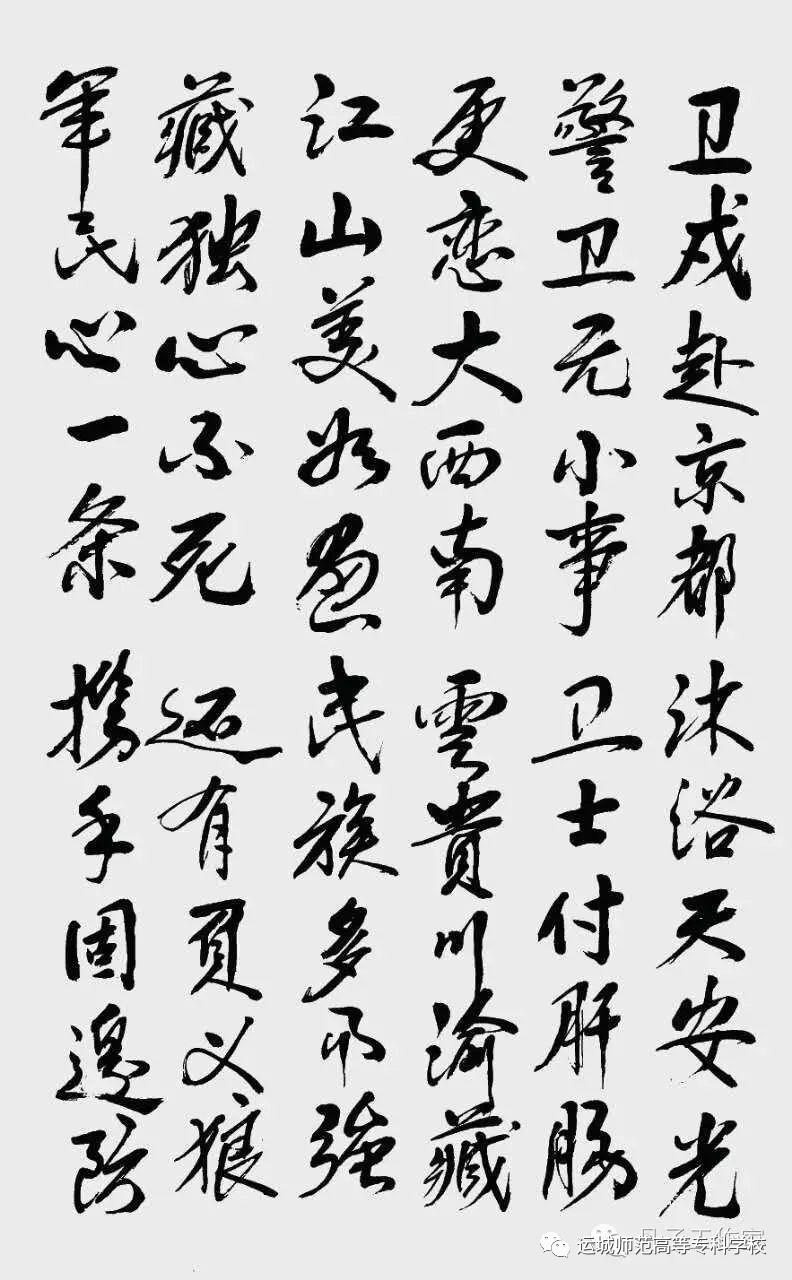 卫戍赴京都 沐浴天安光
警卫无小事 卫士付肝肠
更恋大西南 雲貴川渝藏
江山美如畫 民族多而強
藏独心不死 还有負义狼
军民心一条 携手固邊防
运城师范高等专科学校